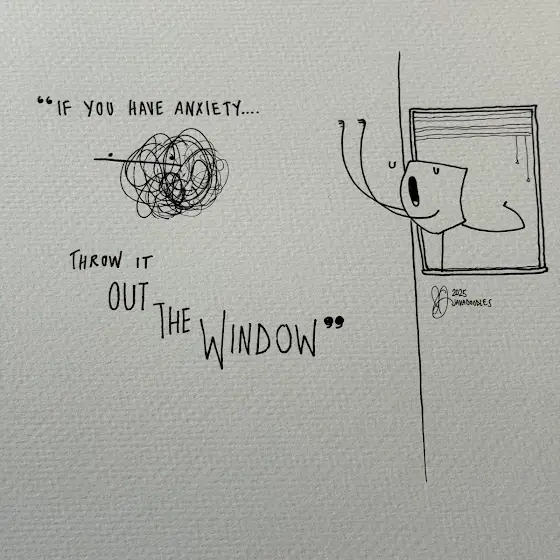 “IF YOU HAVE ANXIETY....
THROW IT
OUT
THE
WINDOW”
2025
JAVADOODLES